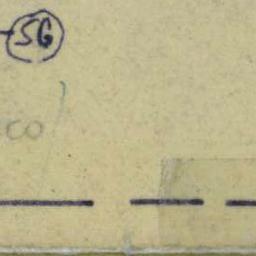 -56
co)